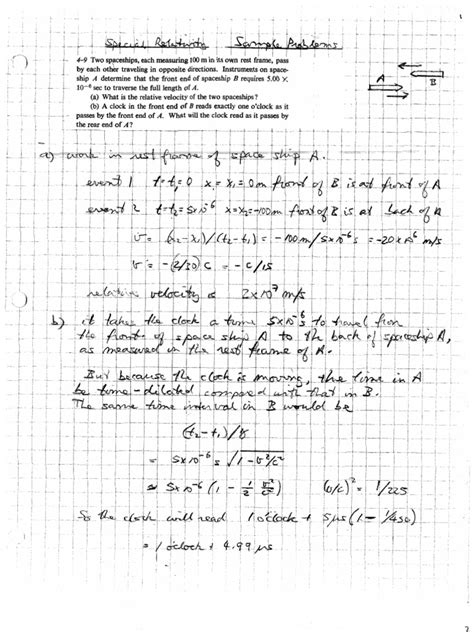 Special Relativity Sample Problems
4-9 Two spaceships, each measuring 100 m in its own rest frame, pass
by each other traveling in opposite directions. Instruments on space-
ship A determine that the front end of spaceship B requires 5.00 ×
10⁻⁶ sec to traverse the full length of A.
(a) What is the relative velocity of the two spaceships?
(b) A clock in the front end of B reads exactly one o'clock as it
passes by the front end of A. What will the clock read as it passes by
the rear end of A?
A
B
a) work in rest frame of space ship A.
event 1 t=t₁=0 x=x₁=0m front of B is at front of A
event 2 t=t₂=5x10⁻⁶ x=x₂=-100m front of B is at back of A
v = (x₂-x₁)/(t₂-t₁) = -100m/5x10⁻⁶s = -20x10⁶ m/s
v = -(2/30)c = -c/15
relative velocity is 2x10⁷ m/s
b) it takes the clock a time 5x10⁻⁶s to travel from
the front of space ship A to the back of spaceship A,
as measured in the rest frame of A.
But because the clock is moving, the time in A
be time-dilated compared with that in B.
The same time interval in B would be
(t₂-t₁)/γ
= 5x10⁻⁶s √1-v²/c²
≃ 5x10⁻⁶(1 - 1/2 v²/c²) (v/c)² = 1/225
So the clock will read 1 o'clock + 5μs(1-1/450)
= 1 o'clock + 4.99 μs